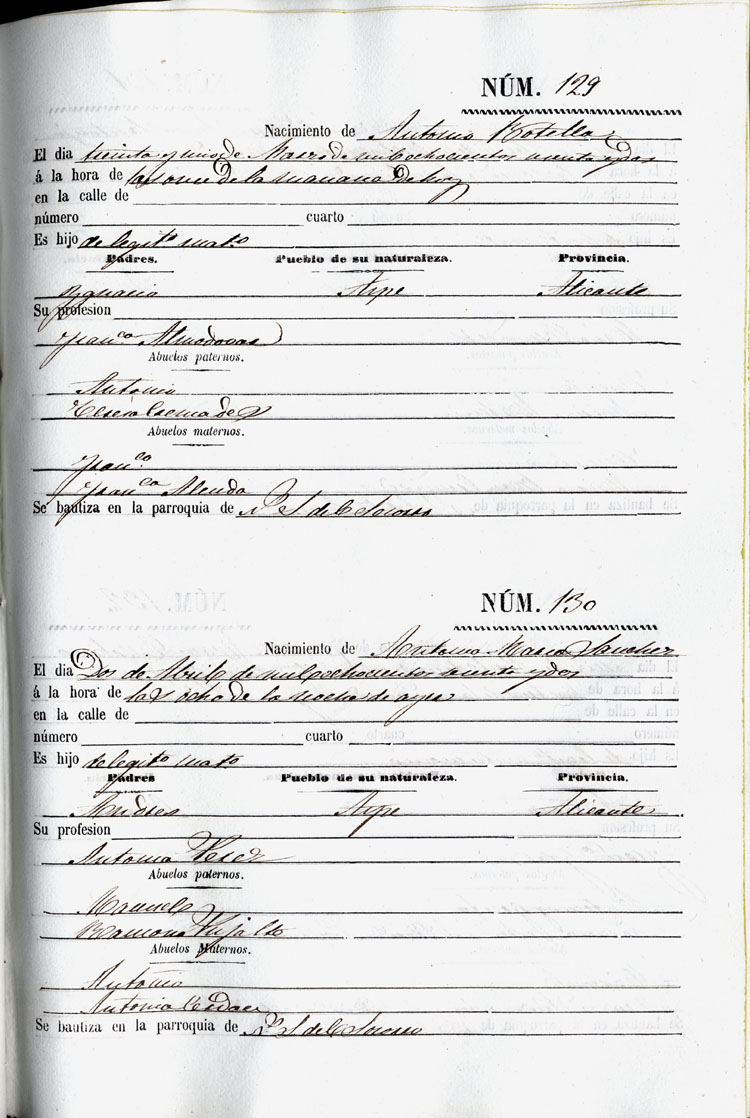 NÚM. 129
Nacimiento de Antonio Botella
El dia treinta y uno de Marzo de mil ochocientos treinta y dos
á la hora de las once de la mañana de hoy
en la calle de
número cuarto
Es hijo de legit.º mat.º
Padres. Pueblo de su naturaleza. Provincia.
Ygnacio Aspe Alicante
Su profesion
Fran.ca Almodovar
Abuelos paternos.
Antonio
Teresa
Abuelos maternos.
Fran.co
Fran.ca Alenda
Se bautiza en la parroquia de N. S. del Socorro
NÚM. 130
Nacimiento de Antonio Maria Sanchez
El dia Dos de Abril de mil ochocientos treinta y dos
á la hora de las ocho de la noche de ayer
en la calle de
número cuarto
Es hijo de legit.º mat.º
Padres Pueblo de su naturaleza. Provincia.
Andres Aspe Alicante
Su profesion
Antonia Perez
Abuelos paternos.
Manuel
Ramona
Abuelos Maternos.
Antonio
Antonia
Se bautiza en la parroquia de N. S. del Socorro